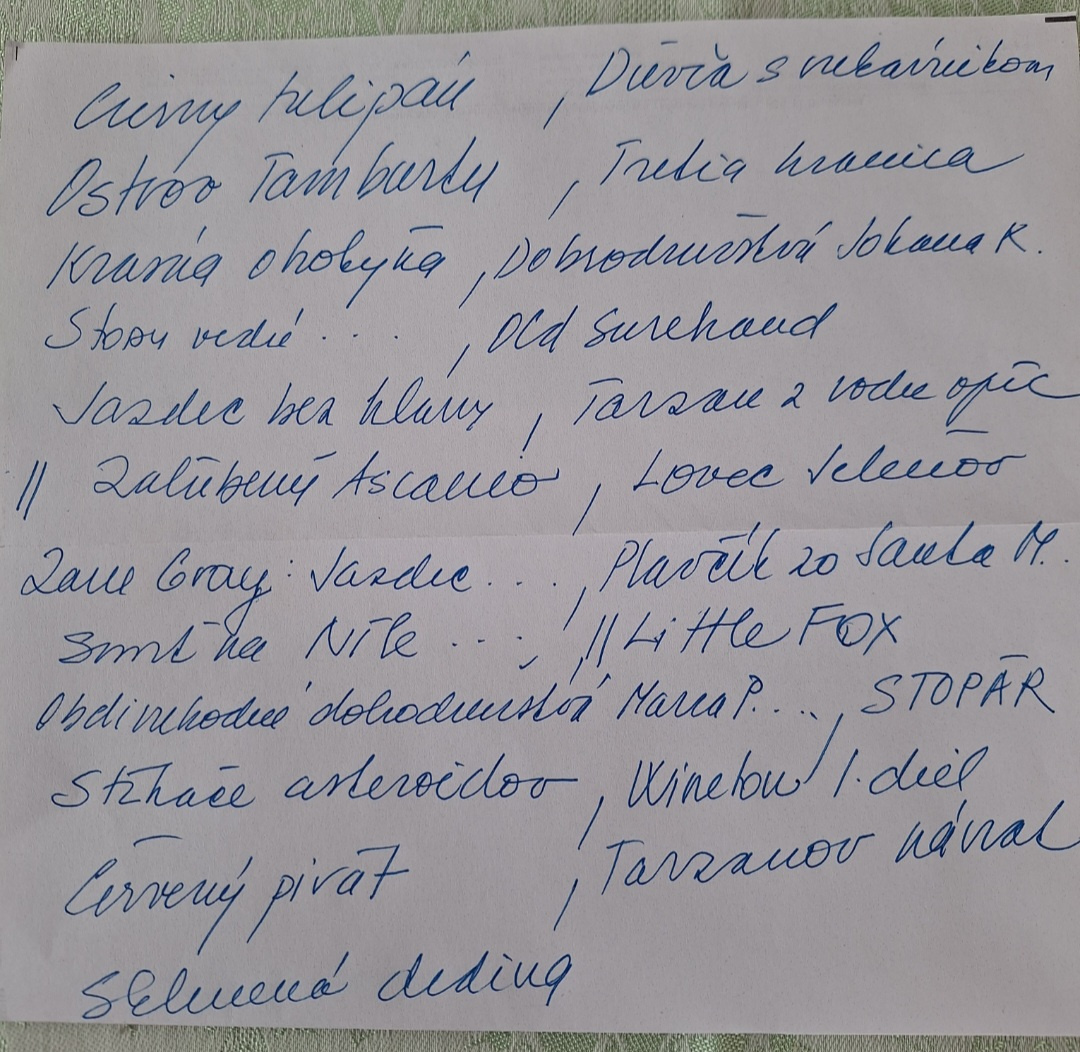 Čierny tulipán , Dievča s nebavíčnikom
Ostrov Tambuktu , Tretia hranica
Krásna otrokyňa , Dobrodružstvá Johana K.
Stopy vedú . . . . , Old Surehand
Jazdec bez hlavy , Tarzan z rodu opíc
// Zaľúbený Ascanio , Lovec Jeleňov
Zane Gray: Jazdec . . . , Plavčík zo Santa M. .
Smrť na Níle . . . , // Little FOX
Obdivuhodné dobrodružstvá Marca P. . . . , STOPÁR
Stíhače asteroidov , Winetou 1. diel
Červený pirát , Tarzanov návrat
Sklenená dedina